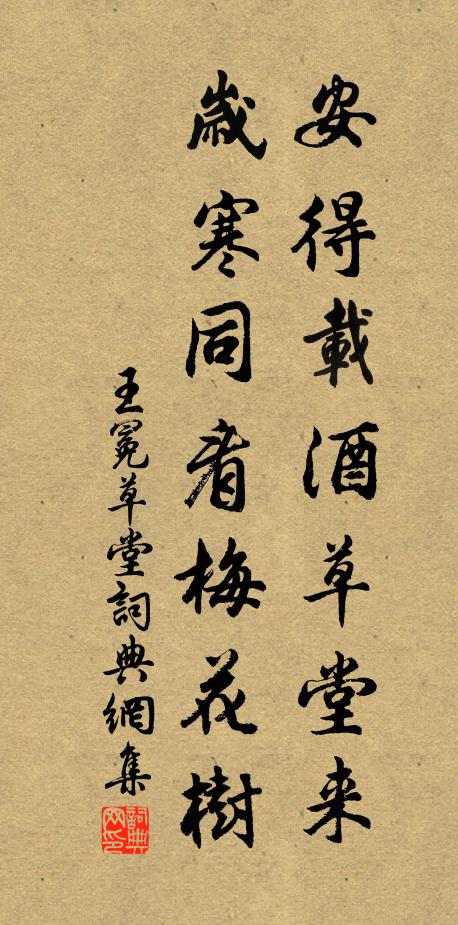 安得載酒草堂来
歲寒同看梅花樹
王冕草堂詞典網集
詞典网印